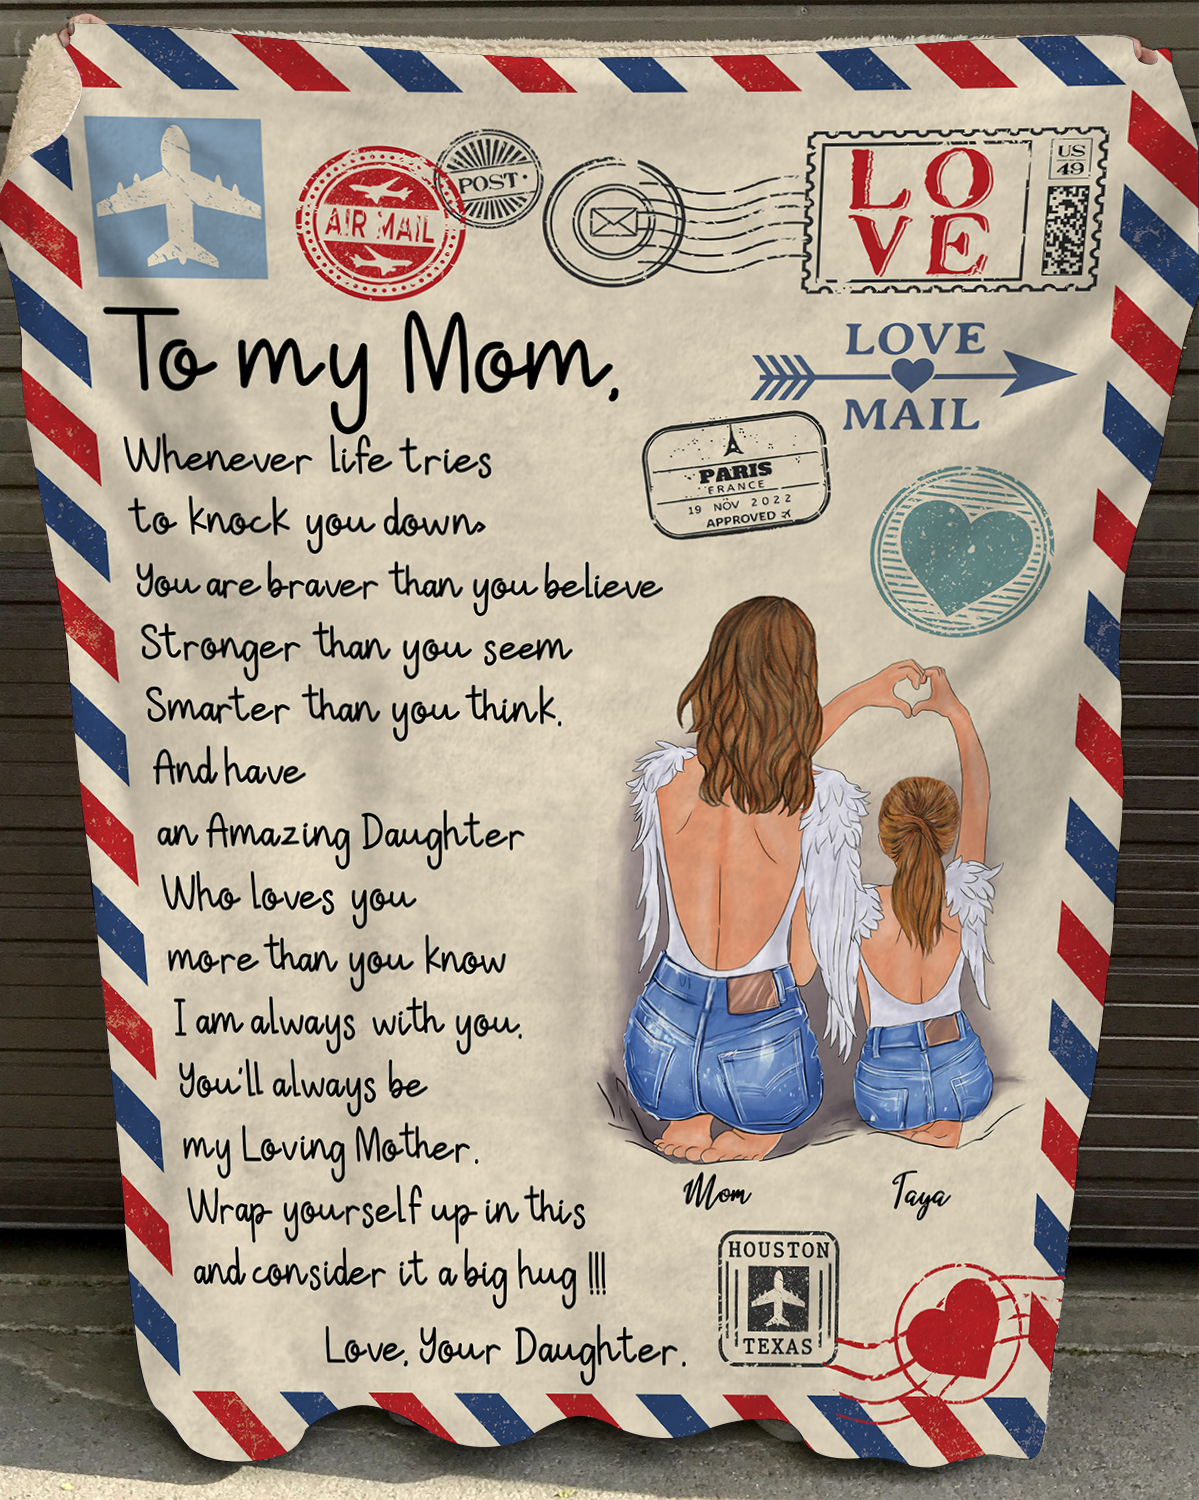 AIR MAIL
POST
LO
VE
US
49
To my Mom,
LOVE
MAIL
PARIS
FRANCE
19 NOV 2022
APPROVED
Whenever life tries
to knock you down,
You are braver than you believe
Stronger than you seem
Smarter than you think.
And have
an Amazing Daughter
Who loves you
more than you know
I am always with you.
You'll always be
my Loving Mother.
Wrap yourself up in this
and consider it a big hug !!!
Love, Your Daughter.
Mom
Taya
HOUSTON
TEXAS